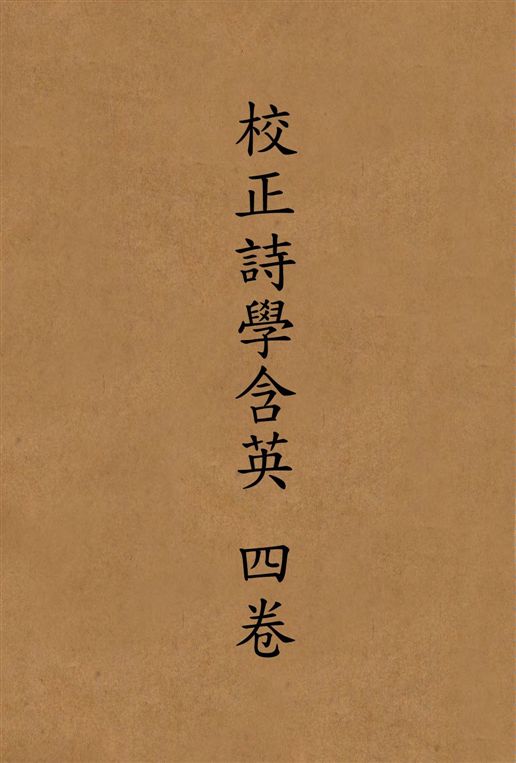 校正詩學含英 四卷